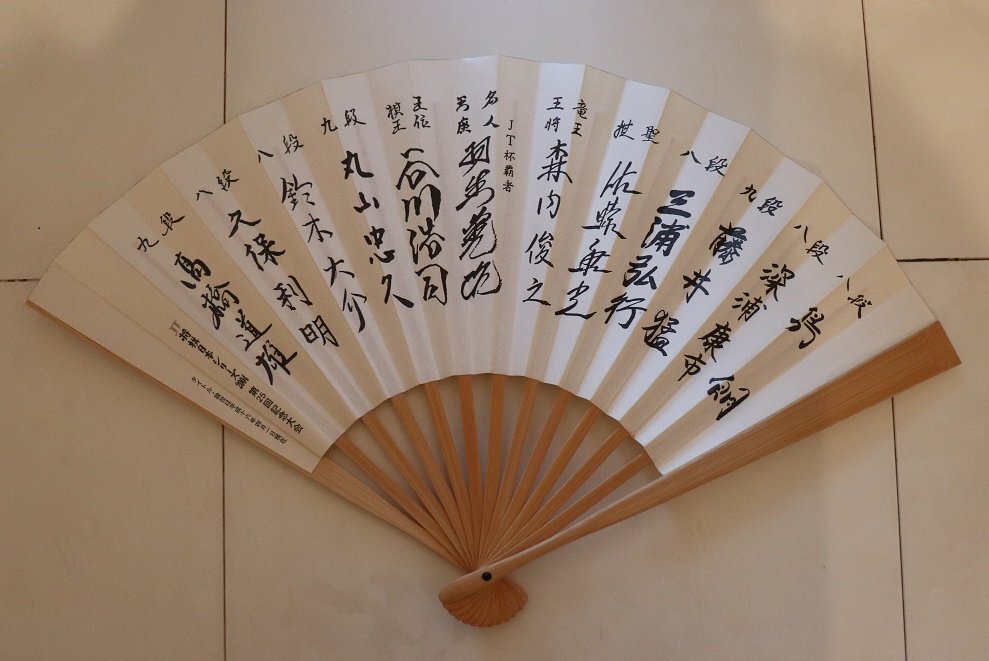 八段
島 朗
八段
深浦康市
九段
藤井 猛
八段
三浦弘行
棋聖
佐藤康光
竜王
王将
森内俊之
JT杯覇者
名人
王座
羽生善治
王位
棋王
谷川浩司
九段
丸山忠久
八段
鈴木大介
八段
久保利明
九段
高橋道雄
JT 将棋日本シリーズ 第25回記念大会
タイトル・段位は平成十六年四月一日現在